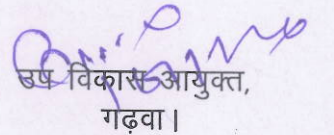 उप विकास आयुक्त,
गढ़वा।